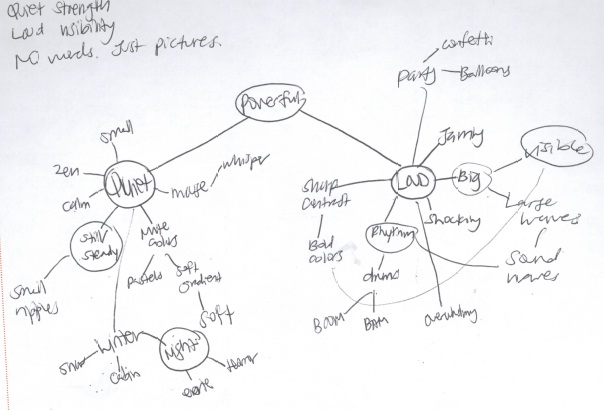 Quiet strength
Loud visibility
No words. Just pictures.
confetti
party
Balloons
Powerful
small
zen
calm
Quiet
mouse
whisper
Jarring
Loud
Big
visible
sharp
contrast
Bold
colors
shocking
Large
waves
Sound
waves
still
steady
Mute
colors
pastels
soft
gradient
soft
small
ripples
Rhythm
drums
BOOM
BAM
Winter
snow
cabin
Night
eerie
Horror